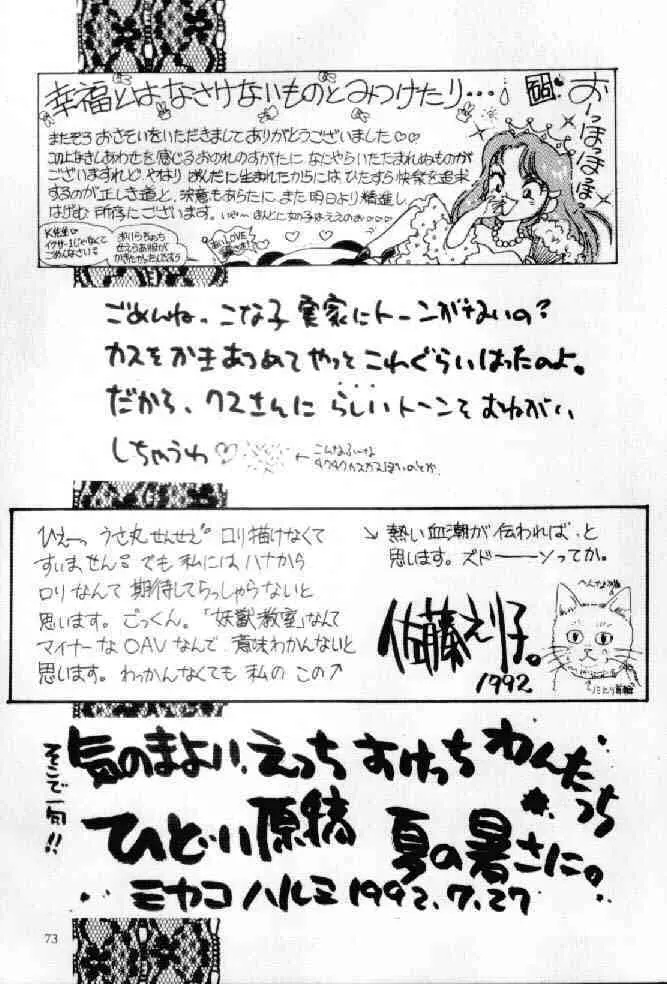 幸福とはなさけないものとみつけたり…
おーっほっほっほ
またぞろおさそいをいただきましてありがとうございました♡♡
このしあわせを感じるおのれのすがたに なにやらいたたまれぬものが
ございますれど、やはり に生まれたからには ひたすら快楽を追求
するのが正しき道と、決意もあらたに、また明日より精進し
はげむ所存にございます。 ほんとに女の子はええのお
K先生♡
イクサー1じゃなくて
ごめんなさい
LOVE
ごめんね、こな子 実家にトーンがないの？
カスをかきあつめてやっとこれぐらいはったのよ。
だから、クスさんに らしいトーンを おねがい
しちゃうわ♡
←こんなふーな
ひえーっ うさ丸せんせえ ロリ描けなくて
すいません。でも私にはハナから
ロリなんて 期待してらっしゃらないと
思います。ごっくん。「妖獣教室」なんて
マイナーなOAVなんで、意味わかんないと
思います。わっかんなくても 私の この↗
↘ 熱い血潮が 伝われば、と
思います。ズドーーンってか。
佐藤えり子。
1992
そこで一句!!
気のまよい、えっち おけっち わんたっち
ひどい原稿 夏の暑さに。
ミヤコハルミ 1992.7.27
73